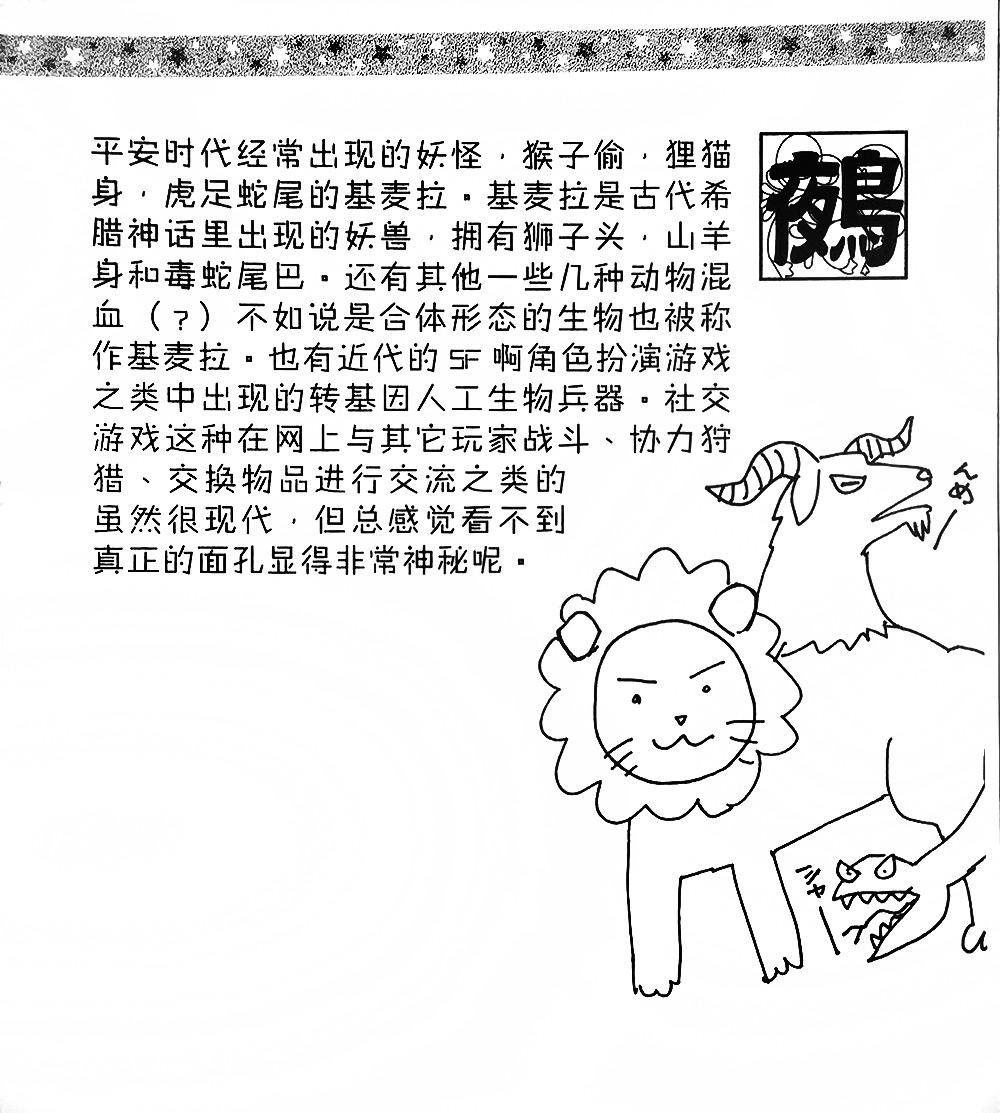 平安时代经常出现的妖怪，猴子偷，狸猫
身，虎足蛇尾的基麦拉。基麦拉是古代希
腊神话里出现的妖兽，拥有狮子头，山羊
身和毒蛇尾巴。还有其他一些几种动物混
血（？）不如说是合体形态的生物也被称
作基麦拉。也有近代的SF啊角色扮演游戏
之类中出现的转基因人工生物兵器。社交
游戏这种在网上与其它玩家战斗、协力狩
猎、交换物品进行交流之类的
虽然很现代，但总感觉看不到
真正的面孔显得非常神秘呢。
鵺
んめー
シャー